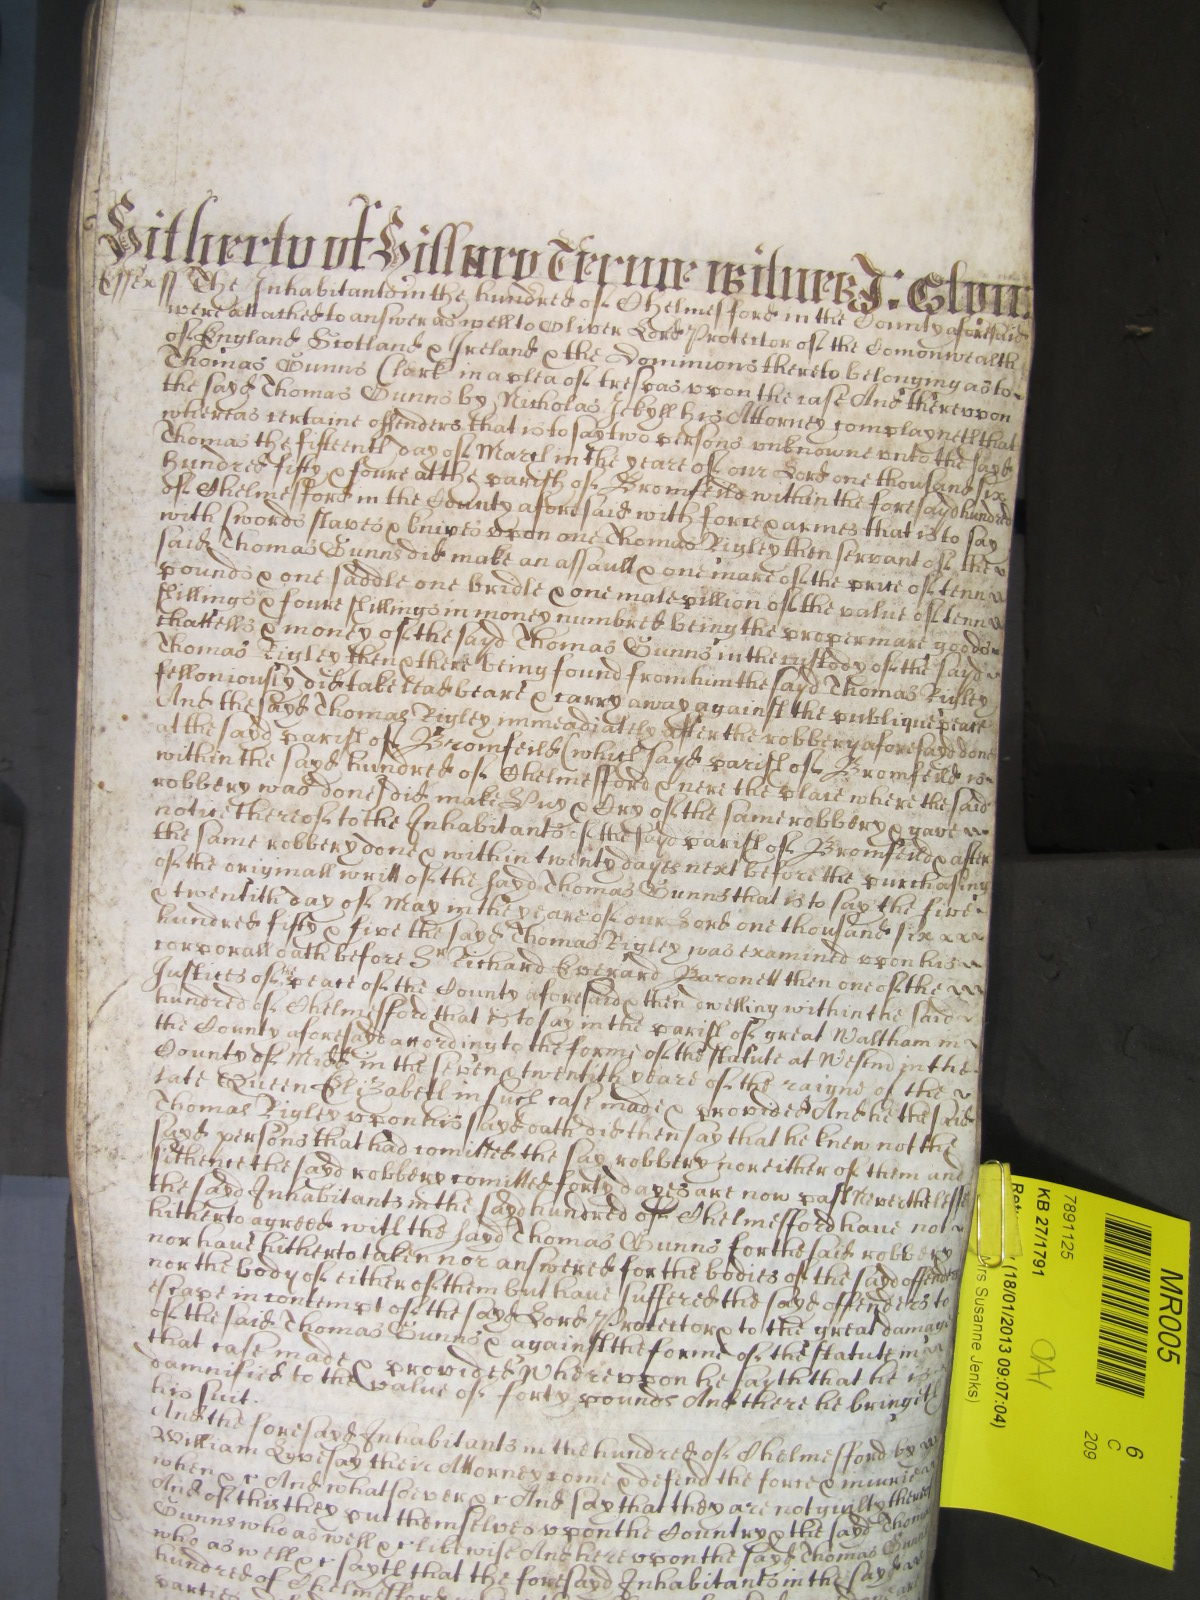 Hitherto of Hillary Terme witnes J: Glynn
Essex ss The Inhabitants in the hundred of Chelmesford in the County aforesaid
were attached to answer as well to Oliver Lord Protector of the Comonwealth
of England Scotland & Ireland & the Dominions thereto belonging as to
Thomas Gunns Clark in a plea of trespas vpon the case And therevpon
the sayd Thomas Gunns by Nicholas Jekyll his Attorney complayneth that
whereas certaine offenders that is to say two persons vnknowne vnto the sayd
Thomas the fifteenth day of March in the yeare of our Lord one thousand six
hundred fifty & foure at the parish of Bromfeild within the foresayd hundred
of Chelmesford in the County aforesaid with force & armes that is to say
with swords staves & knives vpon one Thomas Rigley then servant of the
said Thomas Gunns did make an assault & one mare of the price of tenn
pounds & one saddle one bridle & one male pillion of the value of tenn
shillings & foure shillings in money numbred being the proper mare goods
chattells & money of the sayd Thomas Gunns in the custody of the sayd
Thomas Rigley then & there being found from him the sayd Thomas Rigley
felloniously did take lead beare & carry away against the publique peace
And the sayd Thomas Rigley immeadiately after the robbery aforesayd done
at the sayd parish of Bromfeild (which sayd parish of Bromfeild is
within the sayd hundred of Chelmesford & nere the place where the said
robbery was done) did make Huy & Cry of the same robbery & gave
notice thereof to the Inhabitants of the sayd parish of Bromfeild & after
the same robbery done & within twenty dayes next before the purchasing
of the originall writt of the sayd Thomas Gunns that is to say the five
& twentith day of May in the yeare of our Lord one thousand six
hundred fifty & five the sayd Thomas Rigley was examined vpon his
corporall oath before Sr Richard Everard Baronett then one of the
Justices of the peace of the County aforesaid & then dwelling within the said
hundred of Chelmesford that is to say in the parish of great Waltham in
the County aforesayd according to the forme of the statute at Westm in the
County of Midd in the seven & twentith yeare of the raigne of the
late Queen Elizabeth in such case made & provided And he the said
Thomas Rigley vpon his sayd oath did then say that he knew not the
sayd persons that had comitted the say robbery nor either of them and
sithence the sayd robbery comitted forty dayes are now past Neverthelesse
the sayd Inhabitants in the sayd hundred of Chelmesford have not
hitherto agreed with the sayd Thomas Gunns for the said robbery
nor have hitherto taken nor answered for the bodies of the sayd offenders
nor the body of either of them but have suffered the sayd offenders to
escape in contempt of the sayd Lord Protector & to the great damage
of the said Thomas Gunns & against the forme of the statute in
that case made & provided Wherevpon he sayth that he is
damnified to the value of forty pounds And there he bringeth
his suit.
And the foresayd Inhabitants in the hundred of Chelmesford by
William Lyvesay their Attorney come & defend the force & iniurie
when &c And whatsoever &c And say that they are not guilty thereof
And of this they put themselves vpon the Country & the sayd Thomas
Gunns who as well &c likewise And herevpon the sayd Thomas Gunns
who as well &c sayth that the foresayd Inhabitants in the sayd
hundred of Chelmesford
parties
MR005
6
C
209
7891125
KB 27/1791
(18/01/2013 09:07:04)
Mrs Susanne Jenks)